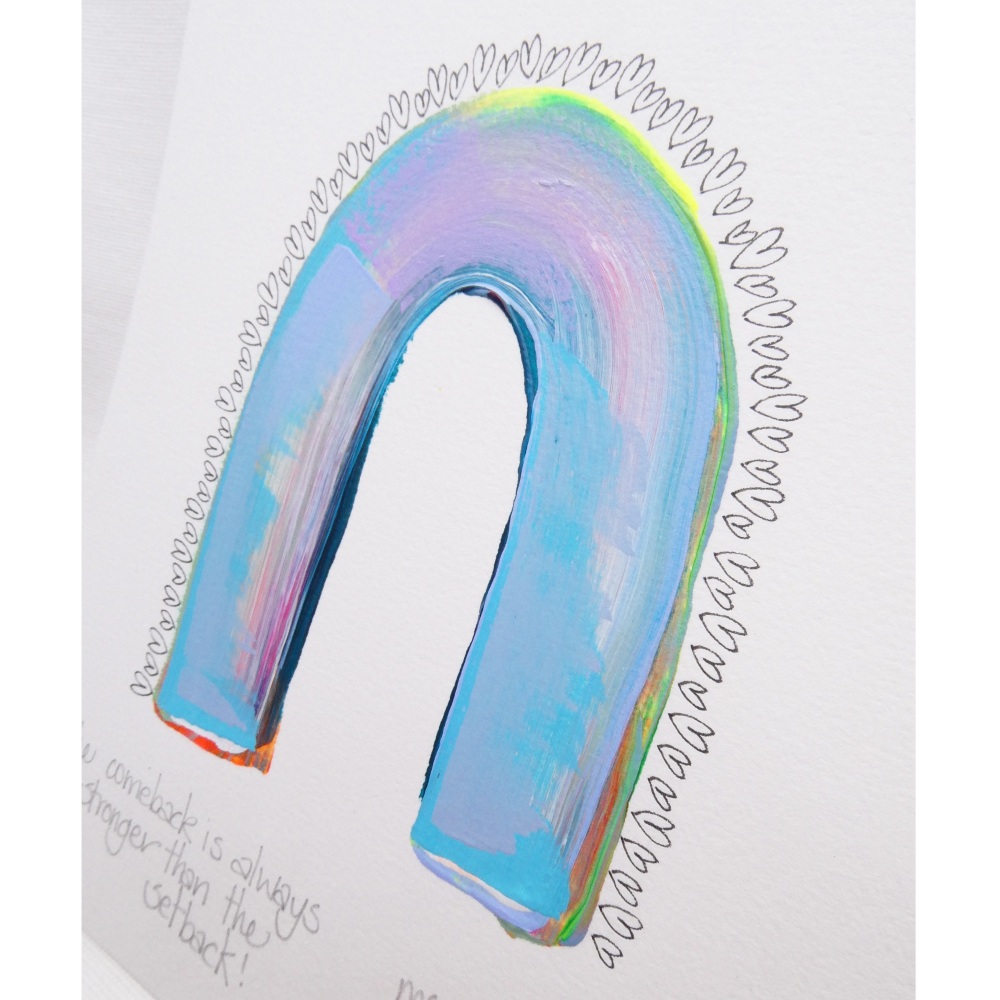 comeback is always
stronger than the
setback!